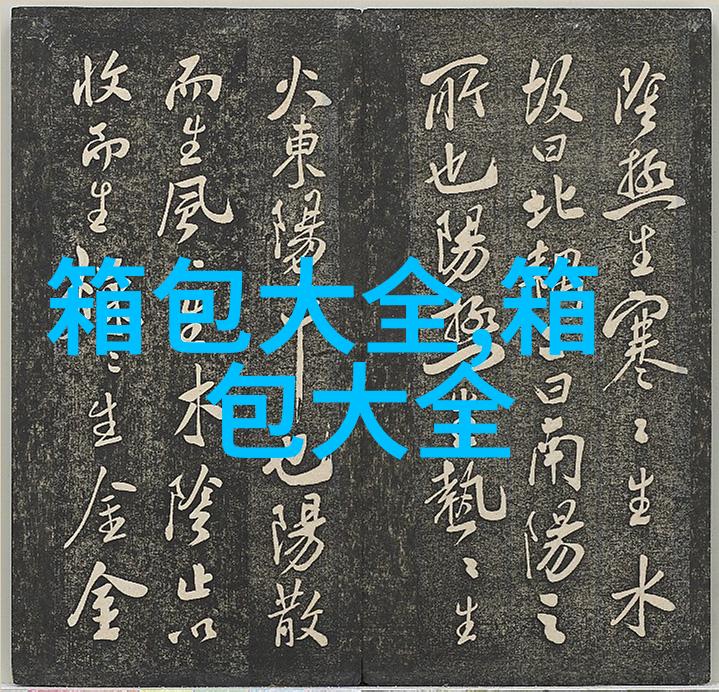 箱包大全,箱
包大全
陰極生寒〻生水
故曰北曰南陽之
所也陽極生熱〻生
火東陽也陽散
而生風生木陰止以
收而生〻生金金